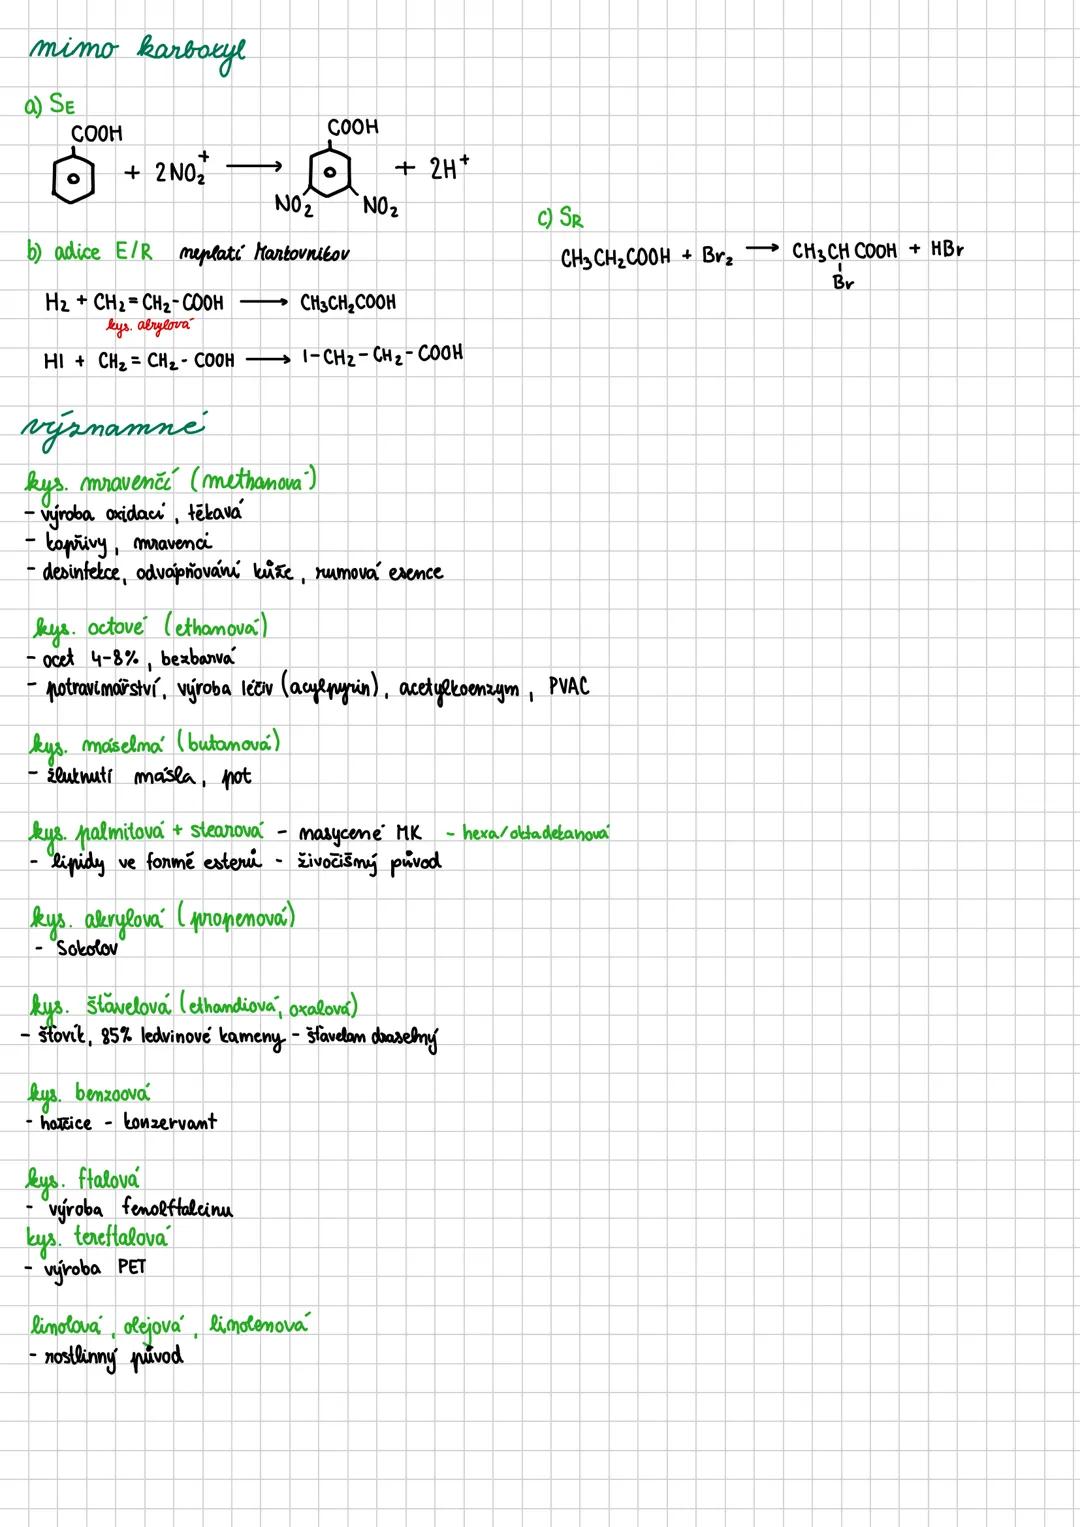 mimo karboxyl
a) SE
COOH COOH
+ 2 NO₂⁺ ⟶ + 2H⁺
NO₂ NO₂
b) adice E/R neplatí Markovnikov
H₂ + CH₂ = CH₂ - COOH ⟶ CH₃CH₂COOH
kys. akrylová
HI + CH₂ = CH₂ - COOH ⟶ I - CH₂ - CH₂ - COOH
c) SR
CH₃CH₂COOH + Br₂ ⟶ CH₃CHCOOH + HBr
Br
významné
kys. mravenčí (methanová)
- výroba oxidací, těkavá
- kopřivy, mravenci
- desinfekce, odvápňování kůže, rumová esence
kys. octové (ethanová)
- ocet 4-8%, bezbarvá
- potravinářství, výroba léčiv (acylpyrin), acetylkoenzym, PVAC
kys. máselná (butanová)
- žluknutí másla, pot
kys. palmitová + stearová - nasycené MK - hexa/oktadekanová
- lipidy ve formě esterů - živočišný původ
kys. akrylová (propenová)
- Sokolov
kys. šťavelová (ethandiová, oxalová)
- šťovík, 85% ledvinové kameny - šťavelan draselný
kys. benzoová
- hořčice - konzervant
kys. ftalová
- výroba fenolftaleinu
kys. tereftalová
- výroba PET
linolová, olejová, linolenová
- rostlinný původ